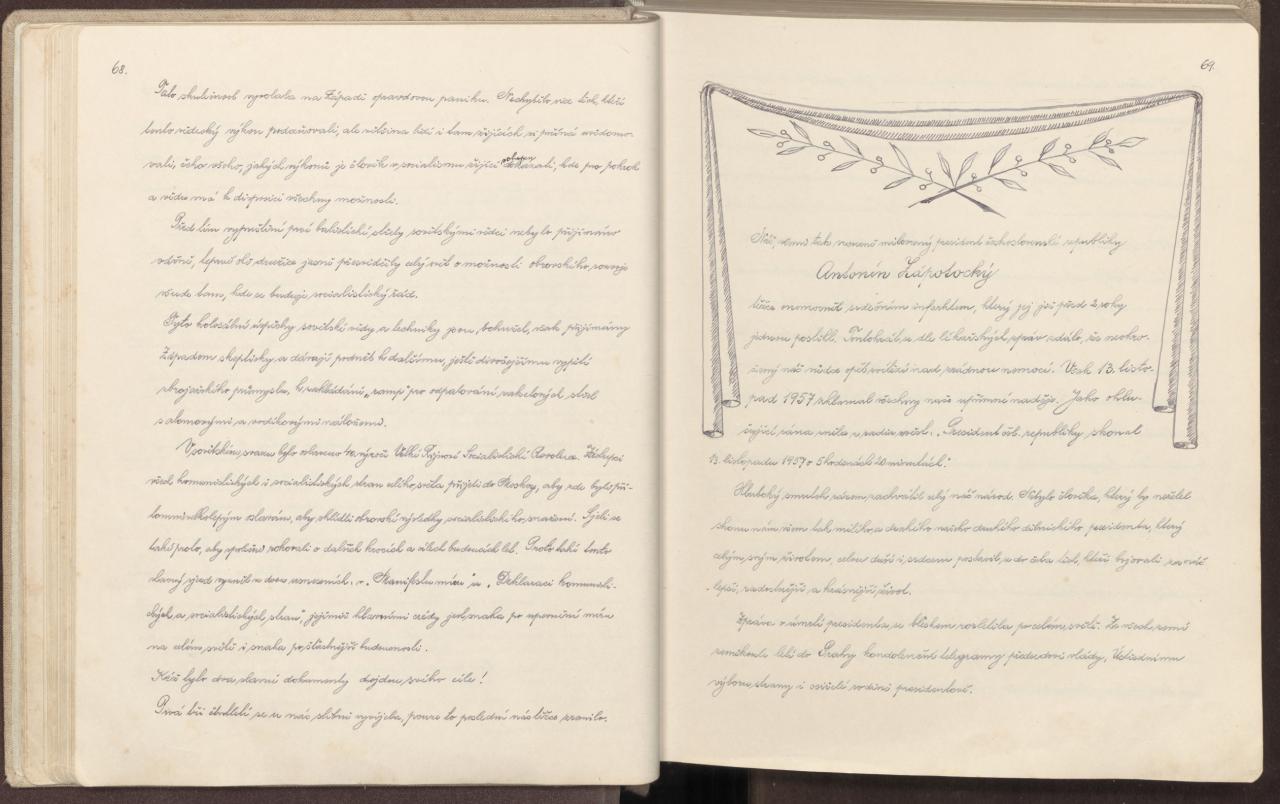 68.
Tato skutečnost vyvolala na Západě opravdovou paniku. Nechybělo více těch, kteří
tento vědecký výkon podceňovali, ale většina lidí i tam žijících si přitom uvědomo-
vali, čeho všeho, jakých výkonů je člověk v socialismu žijící schopen dokázati, kde pro pokrok
a vědu má k disposici všechny možnosti.
Před tím vypuštění prvé balistické střely sovětskými vědci nebylo přijímáno
vážně, teprve obě družice jasně přesvědčily celý svět o možnosti obrovského rozvoje
všude tam, kde se buduje socialistický řád.
Tyto kolosální úspěchy sovětské vědy a techniky jsou, bohužel, však přijímány
Západem skepticky a dávají podnět k dalšímu, ještě divočejšímu vypětí
zbrojařského průmyslu, k zakládání „ramp" pro odpalování raketových střel
s atomovými a vodíkovými náložemi.
V sovětském svazu bylo oslaveno 40. výročí Velké Říjnové Socialistické Revoluce. Zástupci
všech komunistických i socialistických stran celého světa přijeli do Moskvy, aby zde byli pří-
tomni velkolepým oslavám, aby shlédli obrovské výsledky socialistického snažení. Sjeli se
také proto, aby společně rokovali o dalších krocích a cílech budoucích let. Proto také tento
slavný sjezd vyzněl ve dvou usneseních: v „Manifestu míru" a „Deklaraci komunisti-
ckých a socialistických stran", jejímiž hlavními body jsou snaha po upevnění míru
na celém světě i snaha po šťastnější budoucnosti.
Kéž by tyto dva slavné dokumenty dojdou svého cíle!
Prvá tři čtvrtletí se u nás slibně vyvíjela, pouze to poslední nás těžce zranilo.
69.
Náš, všemi tak vroucně milovaný, president československé republiky
Antonín Zápotocký
těžce onemocněl srdečním infarktem, který jej již před 2 roky
jednou postihl. Tentokrát se dle lékařských zpráv zdálo, že neohro-
žený náš vůdce opět zvítězí nad zrádnou nemocí. Však 13. listo-
pad 1957 zklamal všechny naše upřímné naděje. Jako ohlu-
šující rána zněla z radia zvěst: „President čsl. republiky skonal
13. listopadu 1957 v 5 hodinách 20 minutách."
Hluboký smutek rázem zachvátil celý náš národ. Nebylo člověka, který by neželel
skonu nám všem tak milého a drahého našeho druhého dělnického presidenta, který
celým svým životem, celou duší i srdcem postavil se do čela těch, kteří bojovali za náš
lepší, radostnější a krásnější život.
Zpráva o úmrtí presidenta se bleskem rozletěla po celém světě. Ze všech zemí
zeměkoule letí do Prahy kondolenční telegramy předsedovi vlády, Ústřednímu
výboru strany i osiřelé rodině presidentově.